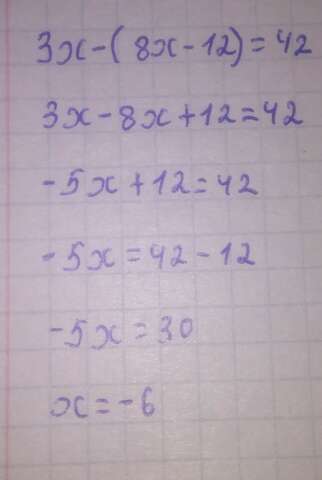 3x-(8x-12)=42
3x-8x+12=42
-5x+12=42
-5x=42-12
-5x=30
x=-6